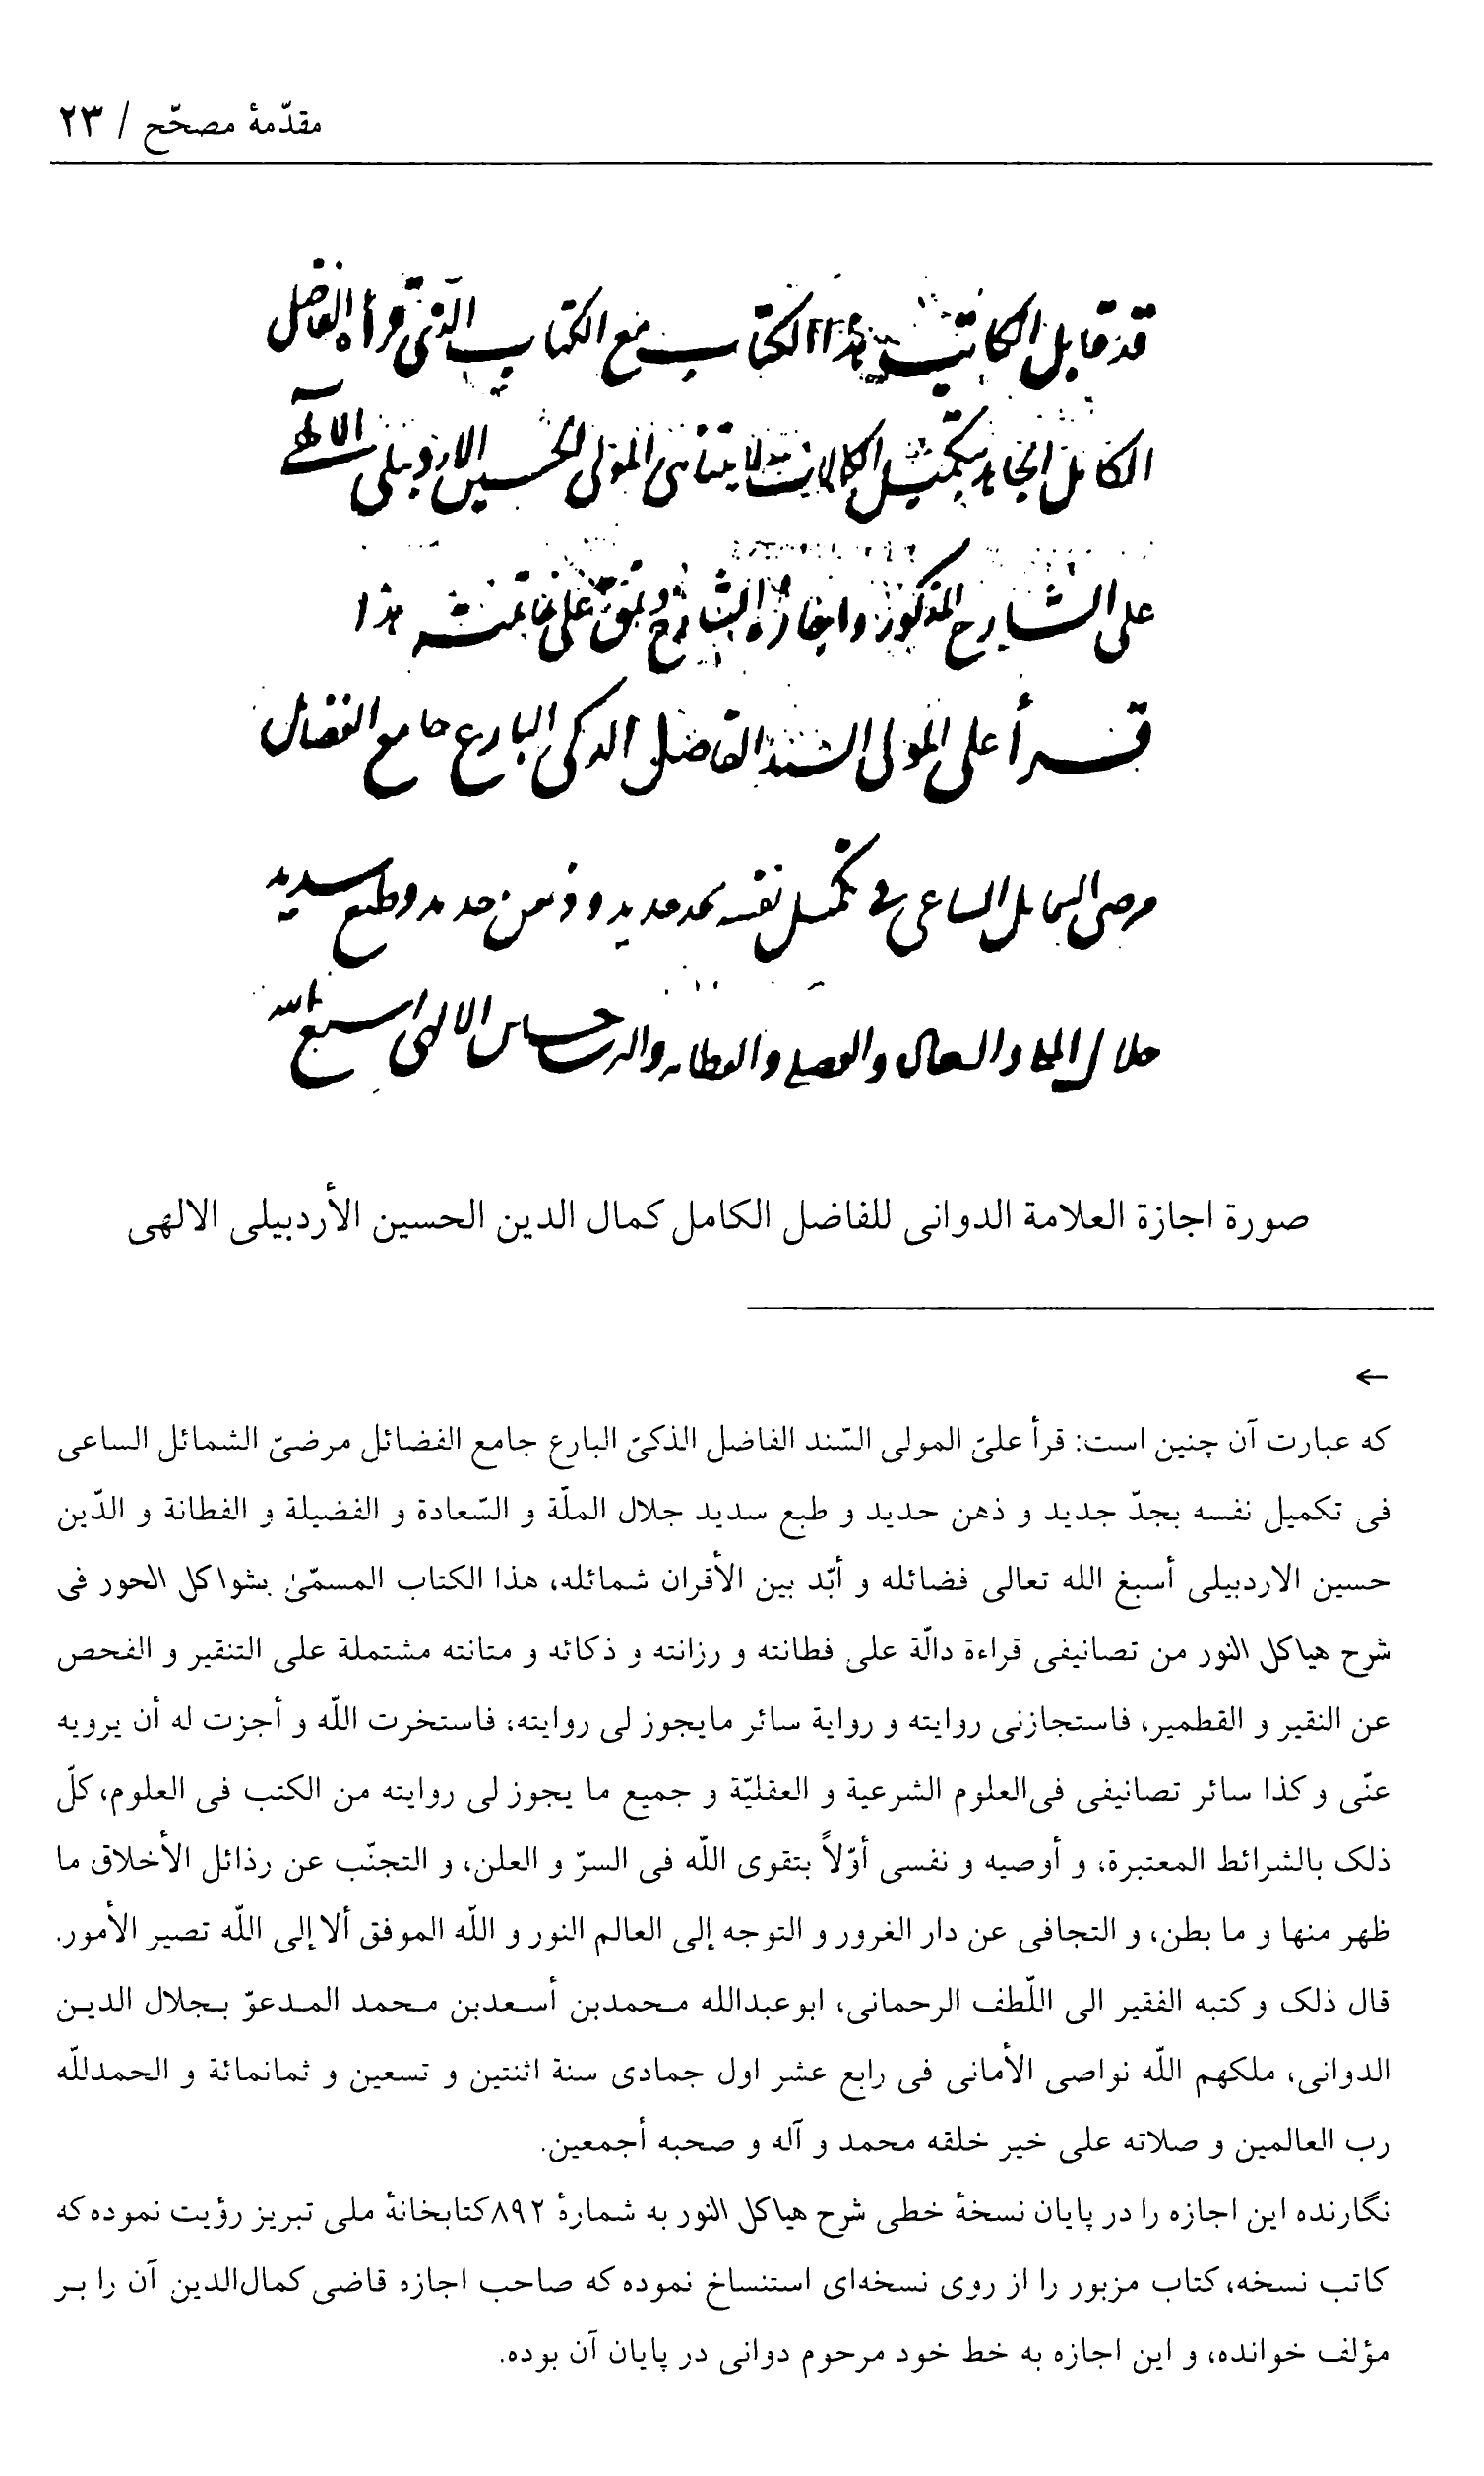 مقدّمهٔ مصحّح / ۲۳
قد قابل الكاتب هذا الكتاب مع الكتاب الذى قرأه الفاضل
الكامل بتكميل الكمالات المولى الحسين الاردبيلى الالهى
على الشارح المذكور واجازه الشارح على خاتمته هذا
قرأ على المولى السند الفاضل الذكى البارع جامع الفضائل
مرضى الشمائل الساعى فى تكميل نفسه بجد جديد و ذهن حديد وطبع سديد
جلال والفطانه والدين حسين الالهى اسبغ الله
صورة اجازة العلامة الدوانى للفاضل الكامل كمال الدين الحسين الأردبيلى الالهى
←
که عبارت آن چنین است: قرأ علیّ المولى السّند الفاضل الذکیّ البارع جامع الفضائل مرضیّ الشمائل الساعى
فى تکمیل نفسه بجدّ جدید و ذهن حدید و طبع سدید جلال الملّة و السّعادة و الفضیلة و الفطانة و الدّین
حسین الاردبیلى أسبغ الله تعالى فضائله و أبّد بین الأقران شمائله، هذا الکتاب المسمّىٰ بشواکل الحور فى
شرح هیاکل النور من تصانیفى قراءة دالّة على فطانته و رزانته و ذکائه و متانته مشتملة على التنقیر و الفحص
عن النقیر و القطمیر، فاستجازنى روایته و روایة سائر مایجوز لى روایته، فاستخرت اللّه و أجزت له أن یرویه
عنّى و کذا سائر تصانیفى فى‌العلوم الشرعیة و العقلیّة و جمیع ما یجوز لى روایته من الکتب فى العلوم، کلّ
ذلک بالشرائط المعتبرة، و أوصیه و نفسى أوّلاً بتقوى اللّه فى السرّ و العلن، و التجنّب عن رذائل الأخلاق ما
ظهر منها و ما بطن، و التجافى عن دار الغرور و التوجه إلى العالم النور و اللّه الموفق ألا إلى اللّه تصیر الأمور.
قال ذلک و کتبه الفقیر الى اللّطف الرحمانى، ابوعبدالله محمدبن أسعدبن محمد المدعوّ بجلال الدین
الدوانى، ملکهم اللّه نواصى الأمانى فى رابع عشر اول جمادى سنة اثنتین و تسعین و ثمانمائة و الحمدللّه
رب العالمین و صلاته على خیر خلقه محمد و آله و صحبه أجمعین.
نگارنده این اجازه را در پایان نسخهٔ خطى شرح هیاکل النور به شمارهٔ ۸۹۲ کتابخانهٔ ملى تبریز رؤیت نموده که
کاتب نسخه، کتاب مزبور را از روى نسخه‌اى استنساخ نموده که صاحب اجازه قاضى کمال‌الدین آن را بر
مؤلف خوانده، و این اجازه به خط خود مرحوم دوانى در پایان آن بوده.